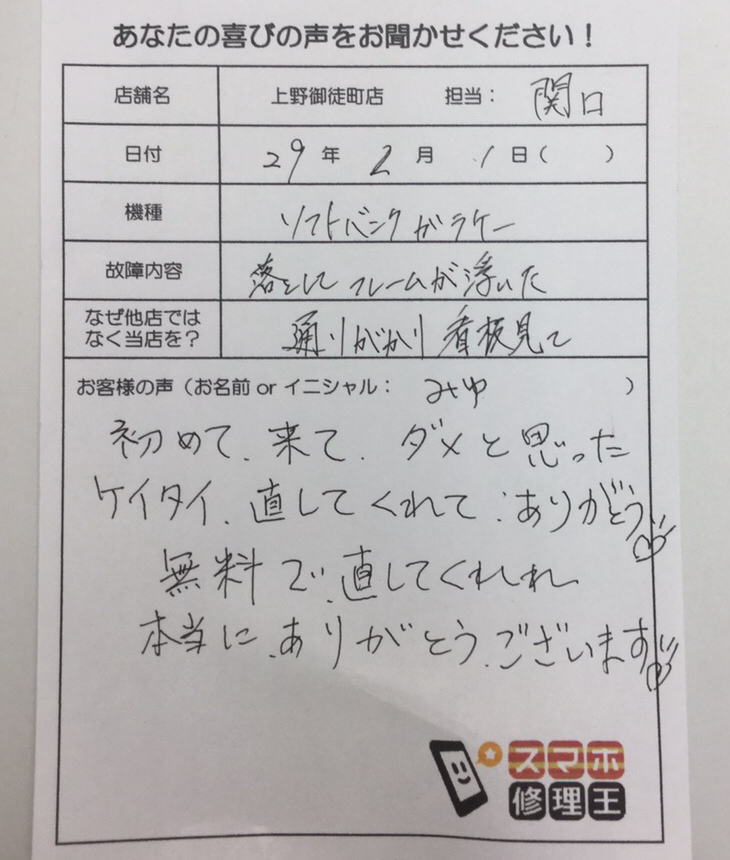 あなたの喜びの声をお聞かせください！
店舗名 上野御徒町店 担当： 関口
日付 29 年 2 月 1 日（ ）
機種 ソフトバンクガラケー
故障内容 落として フレームが浮いた
なぜ他店では
なく当店を？ 通りがかり 看板見て
お客様の声（お名前 or イニシャル： みゆ ）
初めて、来て、ダメと思った
ケイタイ、直してくれて、ありがとう♡
無料で、直してくれれ
本当に、ありがとう、ございます♡
スマホ
修理王